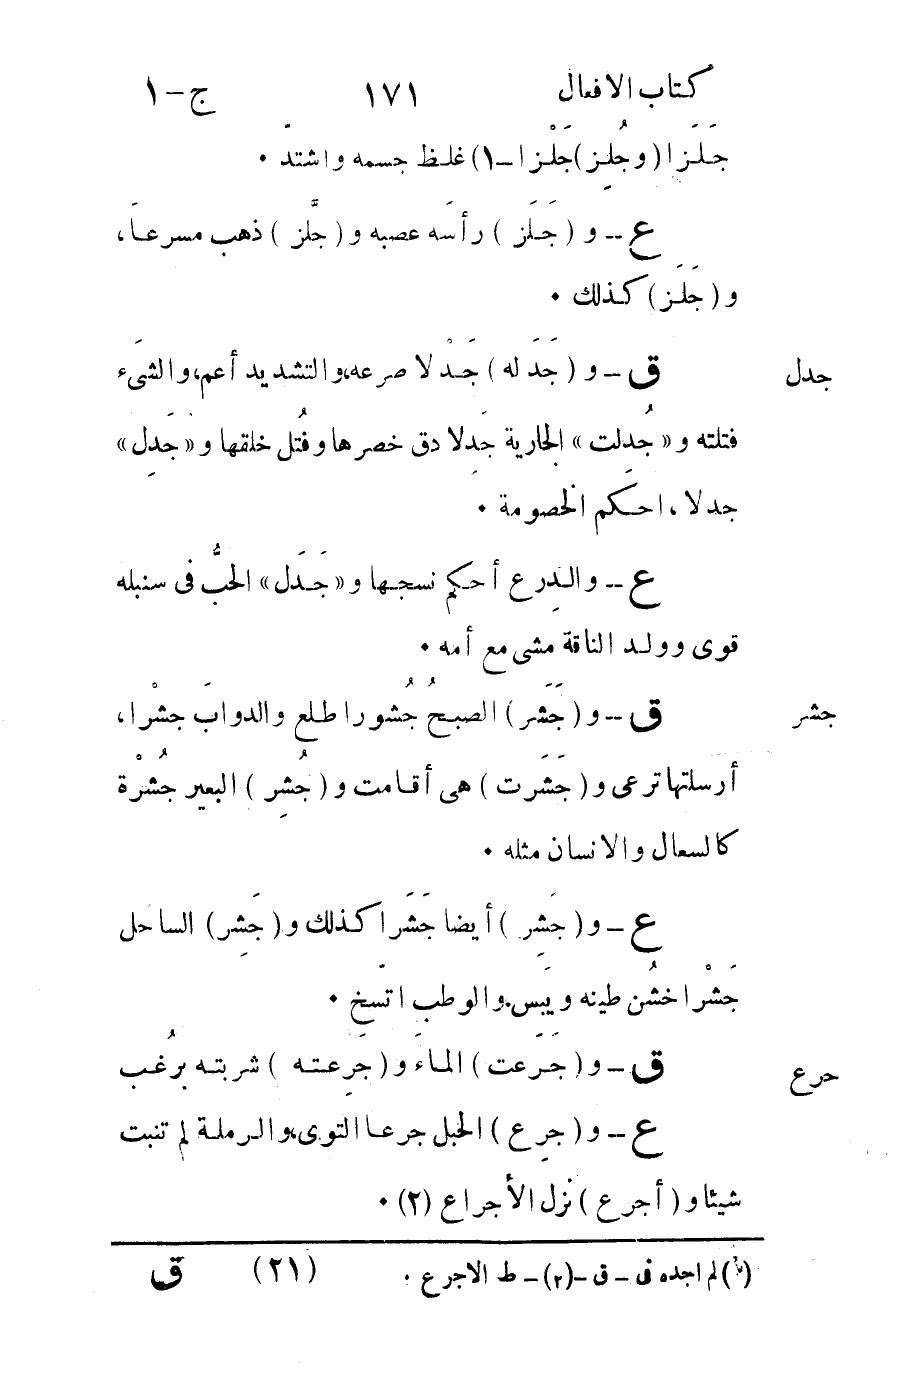 كتاب الافعال ١٧١ ج-١
جَلَزا (وجُلِز) جَلْزا -١) غلظ جسمه واشتدّ ٠
ع - و (جَلَز) رأسَه عصبه و (جلَّز) ذهب مسرعاً،
و (جَلَز) كذلك ٠
جدل
ق - و (جَدَله) جَدْلا صرعه، والتشديد أعم، والشىء
فتلته و « جُدِلت » الجارية جَدِلا دق خصرها وفُتل خلقها و « جَدِل »
جدلا ، احِكم الخصومة ٠
ع - والدِرع أحكم نسجها و « جَدَل » الحبُّ فى سنبله
قوى وولد الناقة مشى مع أمه ٠
جشر
ق - و (جَشَر) الصبحُ جُشورا طلع والدوابَ جشْرا،
أرسلتها ترعى و (جَشَرت) هى أقامت و (جُشِر) البعير جُشْرة
كالسعال والانسان مثله ٠
ع - و (جَشِر) أيضا جَشَرا كذلك و (جَشِر) الساحل
جَشْرا خشُن طينه ويَبَس. والوطب اتّسخ ٠
جرع
ق - و (جَرَعت) الماءَ و (جَرِعته) شربته برُغب
ع - و (جرِع) الحبل جرعا التوى، والرملة لم تنبت
شيئا و (أجرع) نزل الأجراع (٢) ٠
(١) لم اجده فى - ق - (٢) - ط الاجرع ٠ (٢١) ق